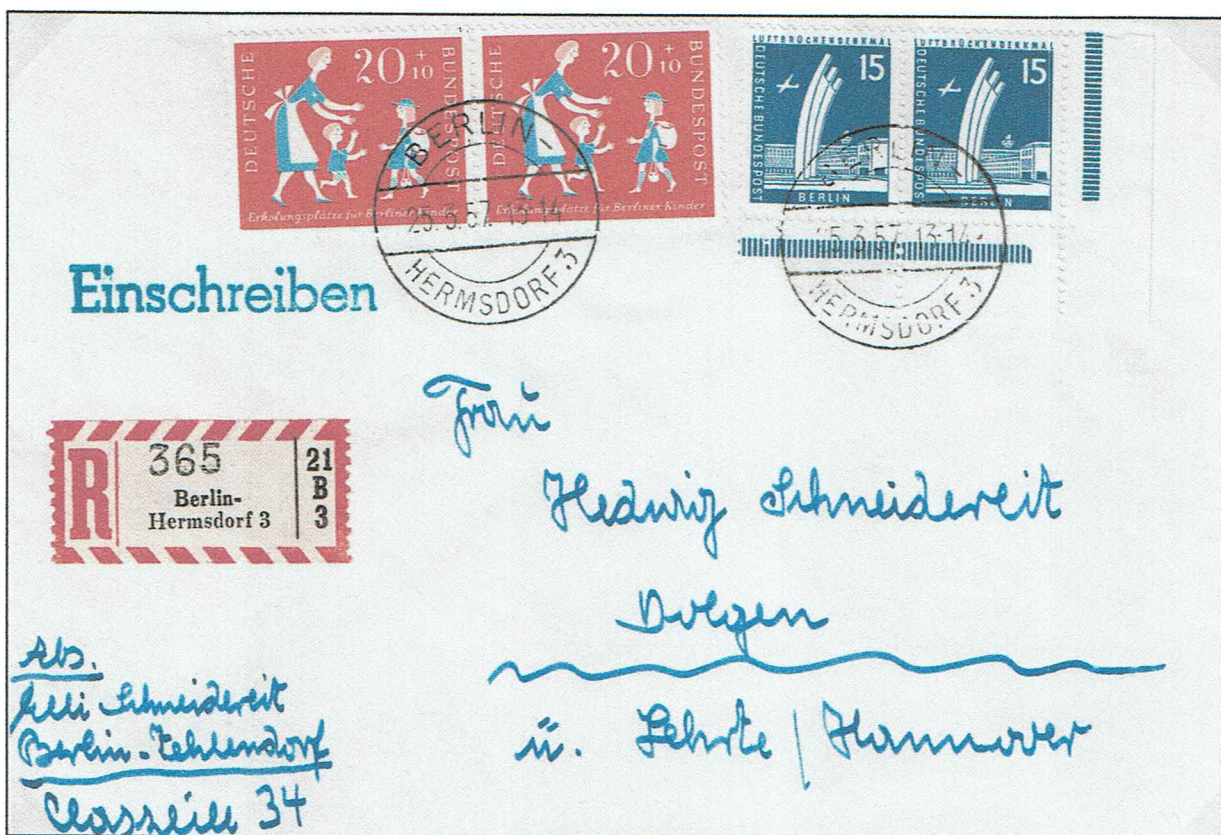 DEUTSCHE BUNDESPOST
20 + 10
Erholungsplätze für Berliner Kinder
DEUTSCHE BUNDESPOST
20 + 10
Erholungsplätze für Berliner Kinder
LUFTBRÜCKENDENKMAL
DEUTSCHE BUNDESPOST
15
BERLIN
LUFTBRÜCKENDENKMAL
DEUTSCHE BUNDESPOST
15
BERLIN
BERLIN
25.3.57.13-14
HERMSDORF 3
BERLIN
5.3.57.13-14
HERMSDORF 3
Einschreiben
R
365
Berlin-
Hermsdorf 3
21
B
3
Frau
Hedwig Schneidereit
Dolgen
ü. Lehrte / Hannover
Abs.
Elli Schneidereit
Berlin-Zehlendorf
34